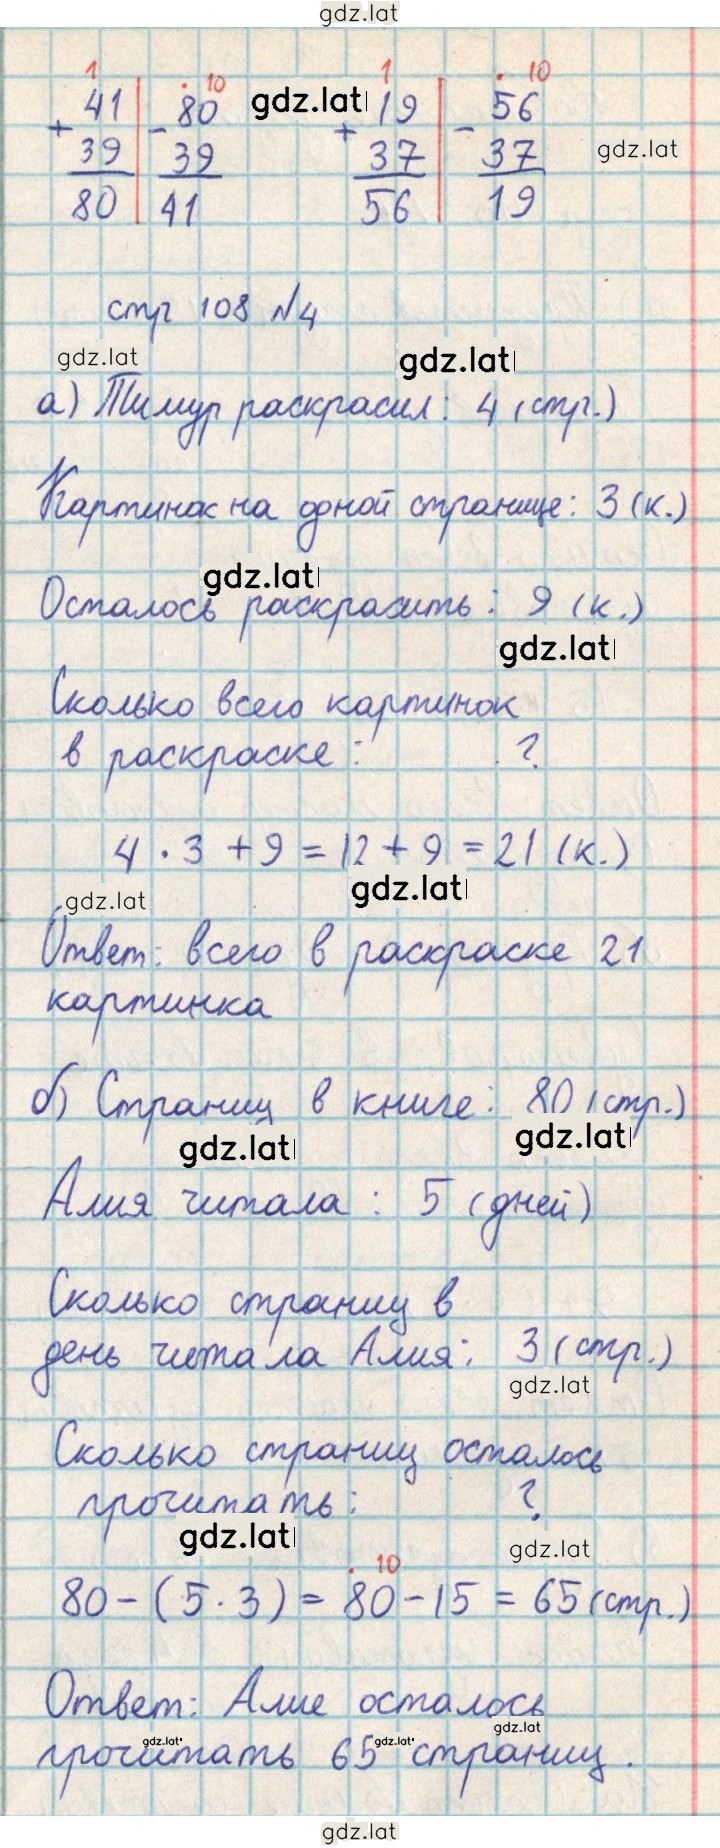 gdz.lat
1 . 10 1 . 10
+ 41 - 80 gdz.lat + 19 - 56
39 39 37 37 gdz.lat
80 41 56 19
стр 108 №4
gdz.lat gdz.lat
а) Тимур раскрасил: 4 (стр.)
Картинок на одной странице: 3 (к.)
gdz.lat
Осталось раскрасить: 9 (к.)
gdz.lat
Сколько всего картинок
в раскраске: ?
4 · 3 + 9 = 12 + 9 = 21 (к.)
gdz.lat gdz.lat
Ответ: всего в раскраске 21
картинка
б) Страниц в книге: 80 (стр.)
gdz.lat gdz.lat
Алия читала: 5 (дней)
Сколько страниц в
день читала Алия: 3 (стр.)
gdz.lat
Сколько страниц осталось
прочитать: ?
gdz.lat gdz.lat
. 10
80 - (5 · 3) = 80 - 15 = 65 (стр.)
Ответ: Алие осталось
gdz.lat gdz.lat gdz.lat
прочитать 65 страниц.
gdz.lat